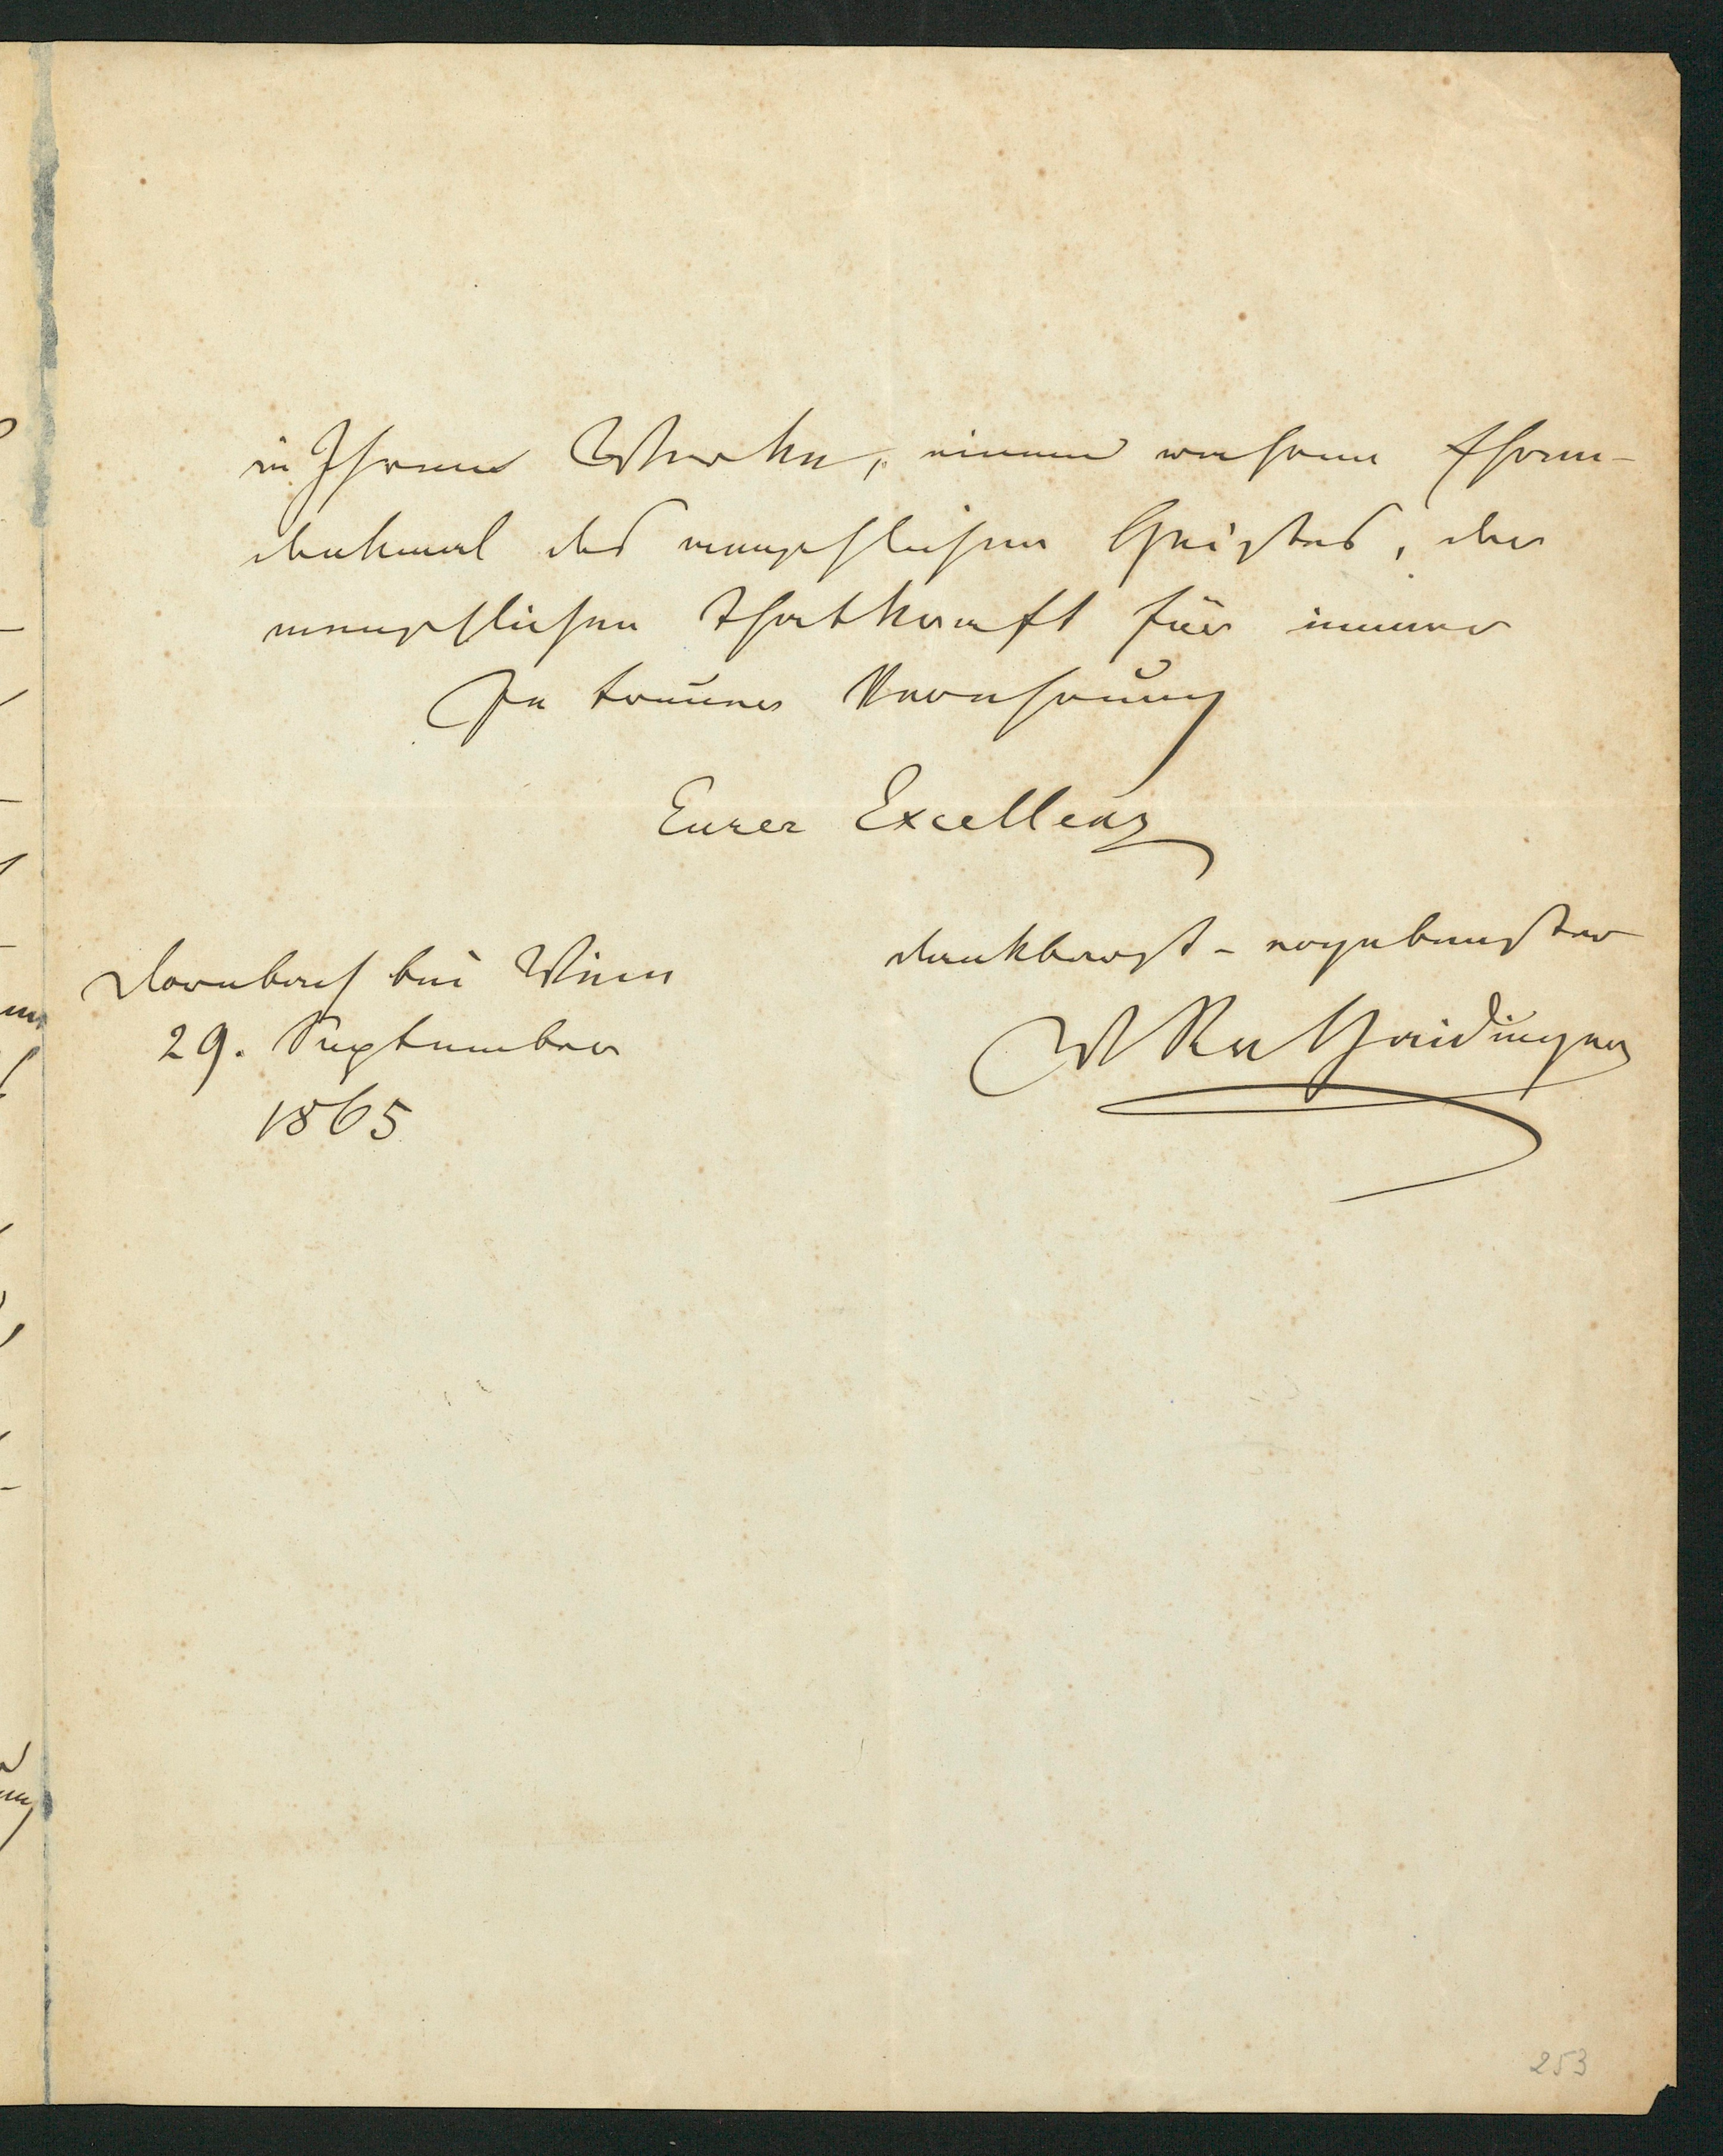 in Ihrem Werke, einem wahren Ehren-
denkmal des menschlichen Geistes, der
menschlichen Thatkraft für immer
In treuer Verehrung
Eurer Excellenz
dankbarst-ergebenster
Dornbach bei Wien
W Haidinger
29. September
1865
253